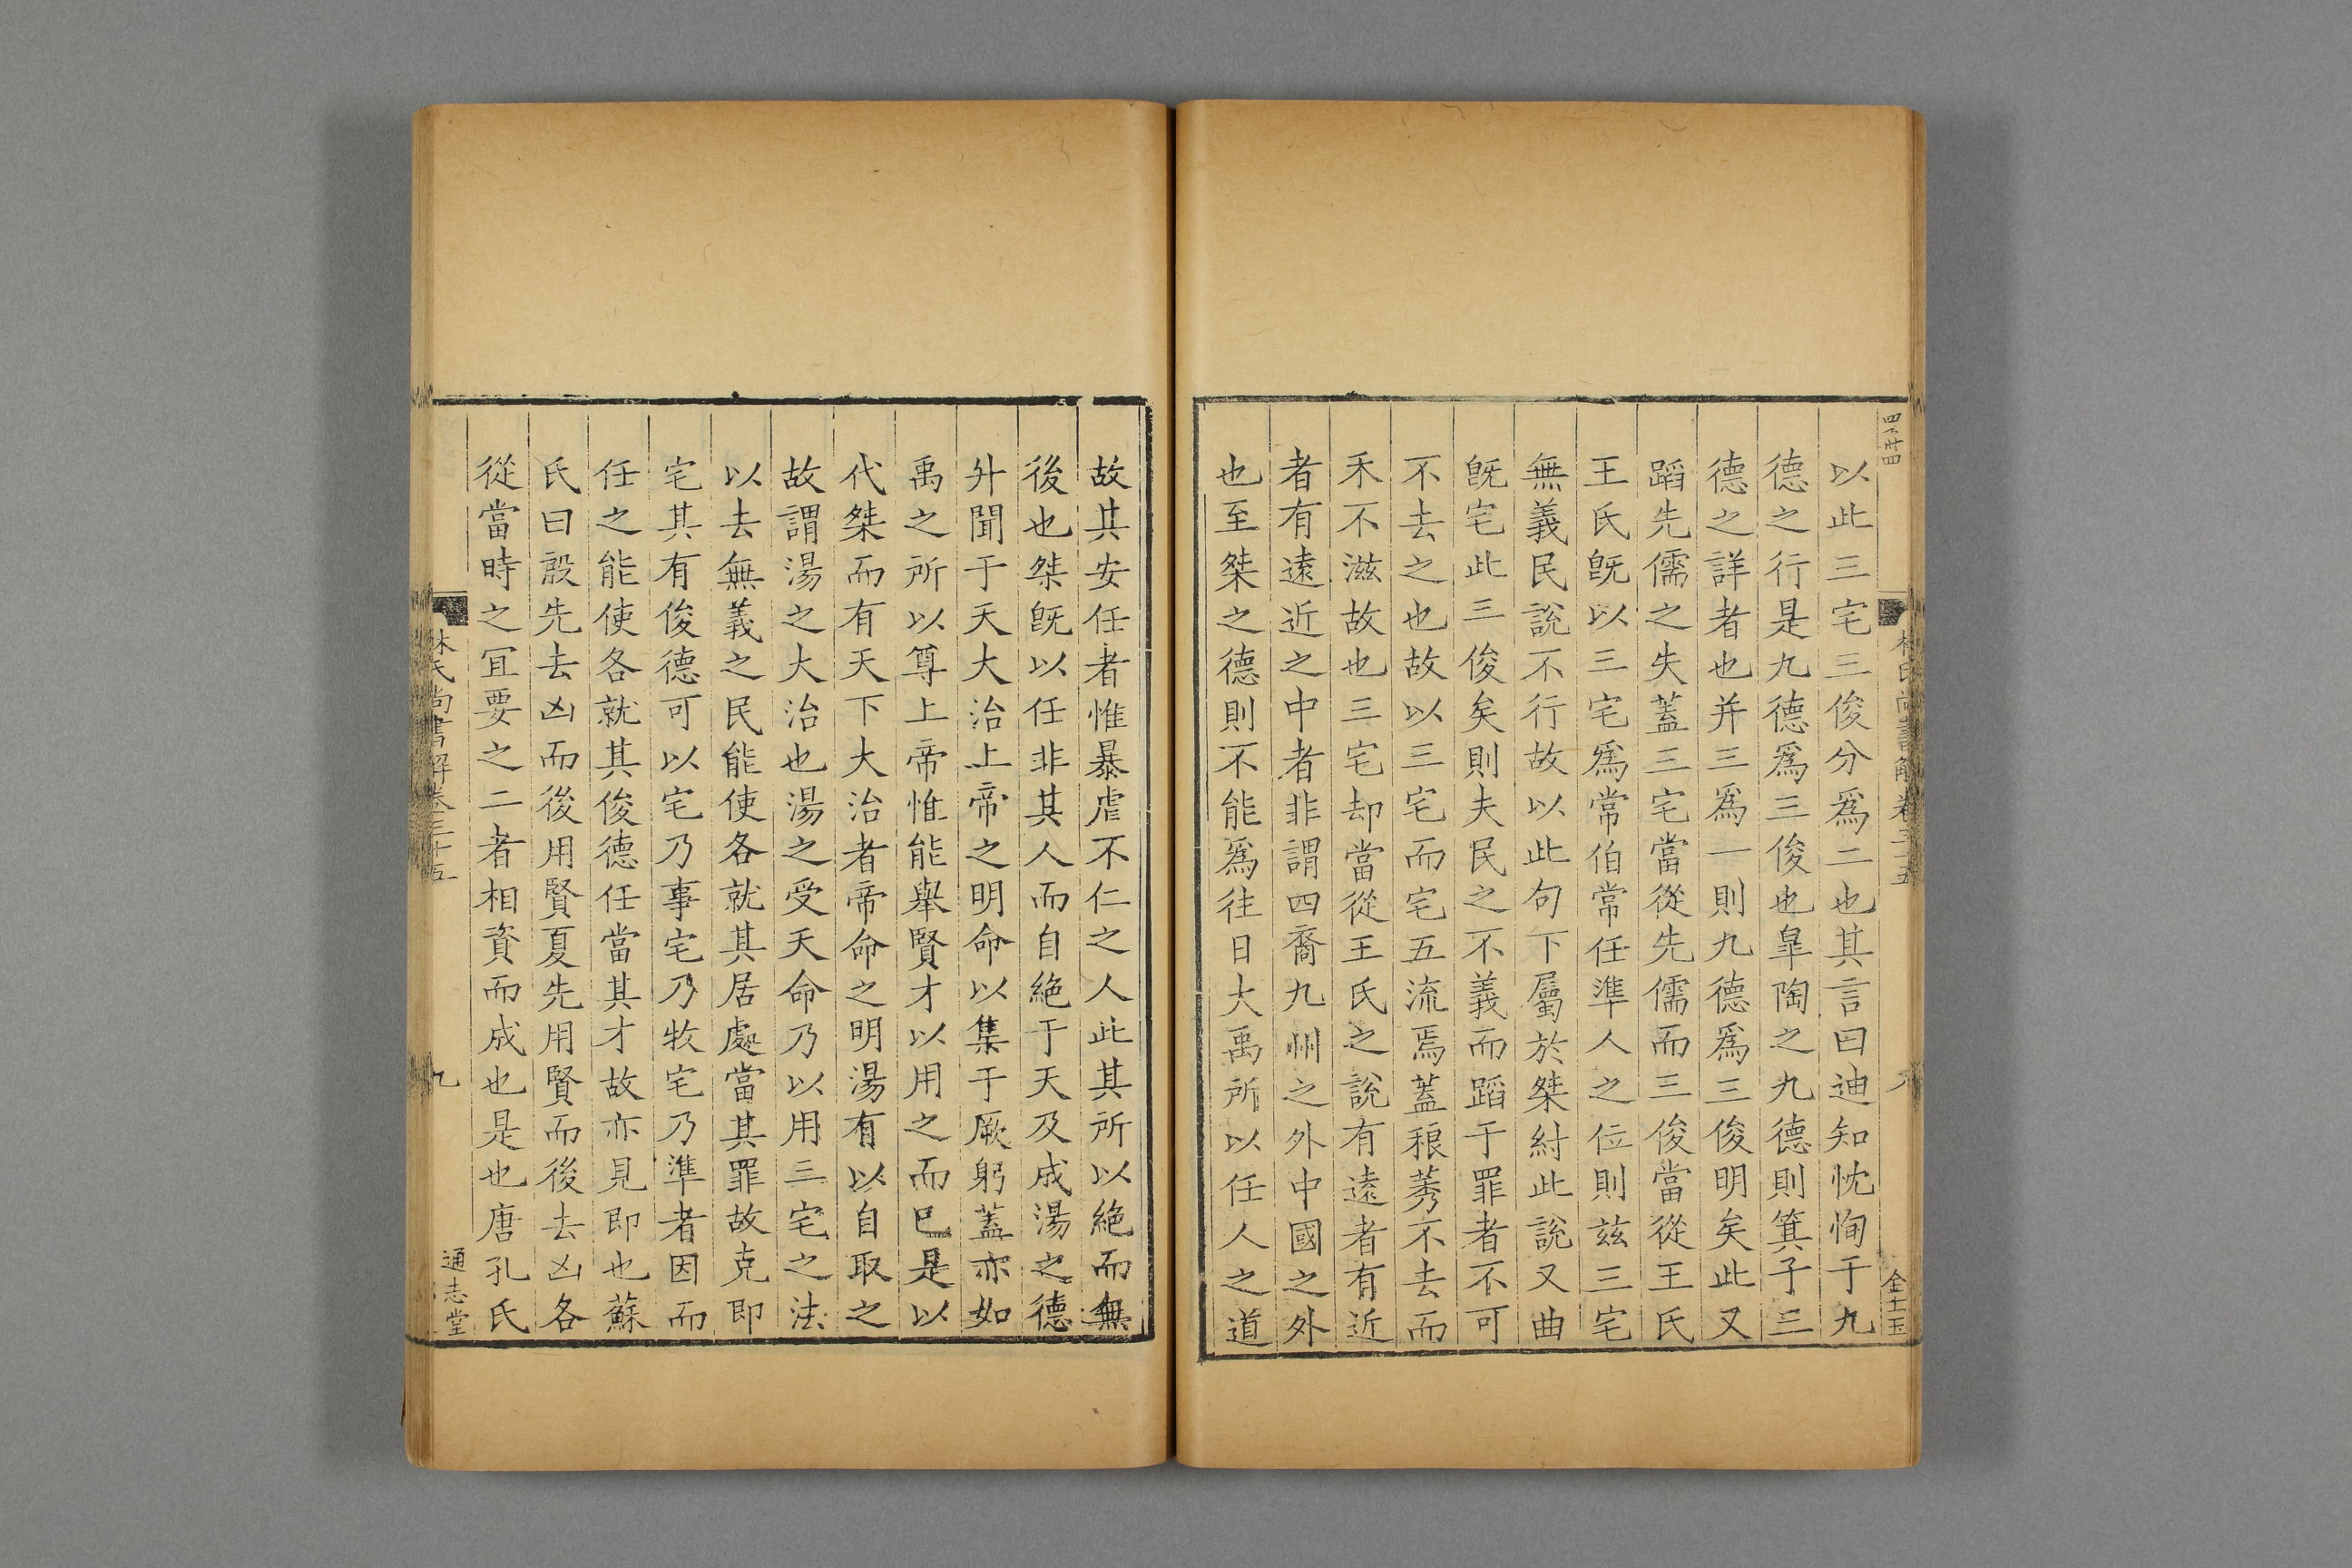 以此三宅三俊分爲二也其言曰迪知忱恂于九
德之行是九德爲三俊也皐陶之九德則箕子三
德之詳者也并三爲一則九德爲三俊明矣此又
蹈先儒之失蓋三宅當從先儒而三俊當從王氏
王氏旣以三宅爲常伯常任準人之位則兹三宅
無義民說不行故以此句下屬於桀紂此說又曲
旣宅此三俊矣則夫民之不義而蹈于罪者不可
不去之也故以三宅而宅五流焉蓋稂莠不去而
禾不滋故也三宅却當從王氏之說有遠者有近
者有遠近之中者非謂四裔九州之外中國之外
也至桀之德則不能爲往日大禹所以任人之道
林氏尚書解卷三十五
八
故其安任者惟暴虐不仁之人此其所以絕而無
後也桀旣以任非其人而自絕于天及成湯之德
升聞于天大治上帝之明命以集于厥躬蓋亦如
禹之所以尊上帝惟能舉賢才以用之而已是以
代桀而有天下大治者帝命之明湯有以自取之
故謂湯之大治也湯之受天命乃以用三宅之法
以去無義之民能使各就其居處當其罪故克即
宅其有俊德可以宅乃事宅乃牧宅乃準者因而
任之能使各就其俊德任當其才故亦見即也蘇
氏曰殷先去凶而後用賢夏先用賢而後去凶各
從當時之冝要之二者相資而成也是也唐孔氏
林氏尚書解卷三十五
九
通志堂